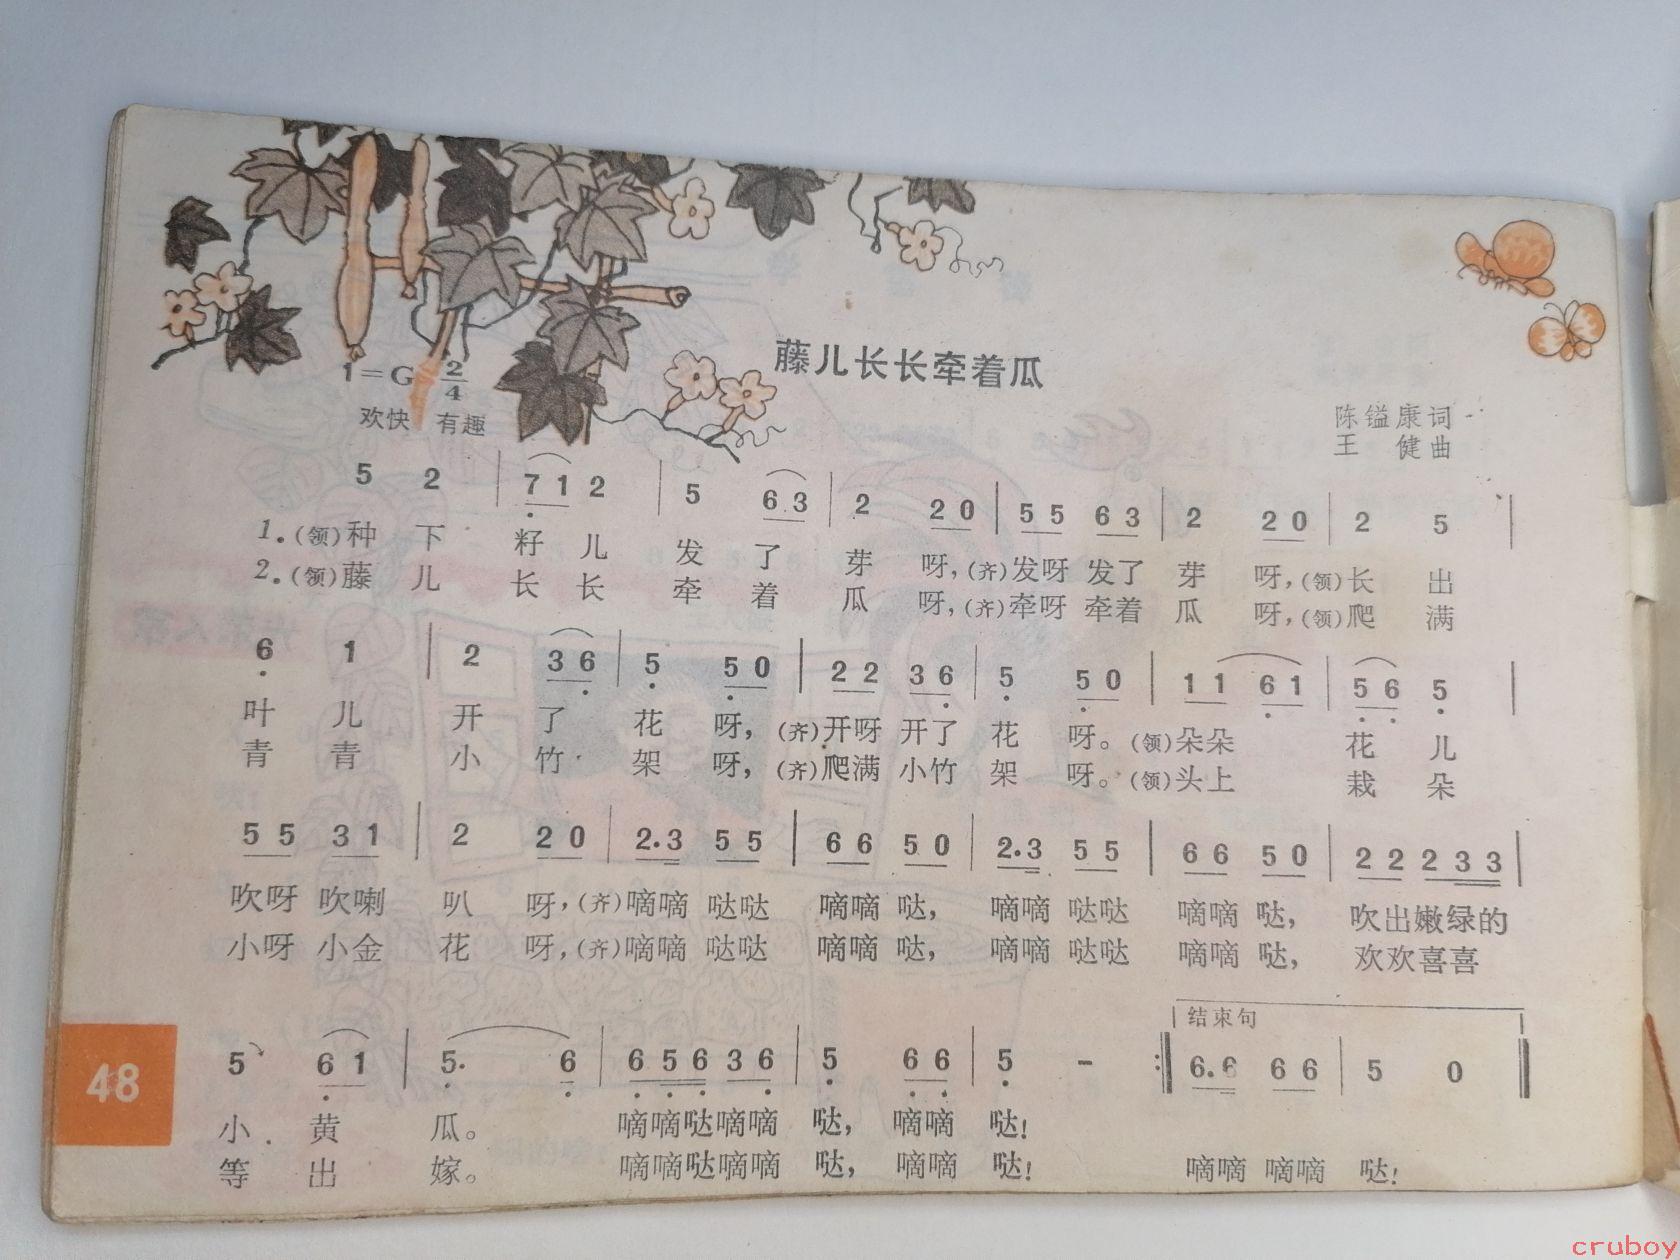 藤儿长长牵着瓜
1=G 2/4
欢快 有趣
陈镒康词
王 健曲
5 2 | 7 1 2 | 5 6 3 | 2 2 0 | 5 5 6 3 | 2 2 0 | 2 5 |
1.(领)种 下 籽 儿 发 了 芽 呀,(齐)发呀 发了 芽 呀,(领)长 出
2.(领)藤 儿 长 长 牵 着 瓜 呀,(齐)牵呀 牵着 瓜 呀,(领)爬 满
6 1 | 2 3 6 | 5 5 0 | 2 2 3 6 | 5 5 0 | 1 1 6 1 | 5 6 5 |
叶 儿 开 了 花 呀,(齐)开呀 开了 花 呀。(领)朵朵 花 儿
青 青 小 竹 架 呀,(齐)爬满 小竹 架 呀。(领)头上 栽 朵
5 5 3 1 | 2 2 0 | 2.3 5 5 | 6 6 5 0 | 2.3 5 5 | 6 6 5 0 | 2 2 2 3 3 |
吹呀 吹喇 叭 呀,(齐)嘀嘀 哒哒 嘀嘀 哒, 嘀嘀 哒哒 嘀嘀 哒, 吹出嫩绿的
小呀 小金 花 呀,(齐)嘀嘀 哒哒 嘀嘀 哒, 嘀嘀 哒哒 嘀嘀 哒, 欢欢喜喜
结束句
5 6 1 | 5. 6 | 6 5 6 3 6 | 5 6 6 | 5 - :‖ 6.6 6 6 | 5 0 ‖
小 黄 瓜。 嘀嘀哒嘀嘀 哒, 嘀嘀 哒!
等 出 嫁。 嘀嘀哒嘀嘀 哒, 嘀嘀 哒! 嘀嘀 嘀嘀 哒!
48
cruboy